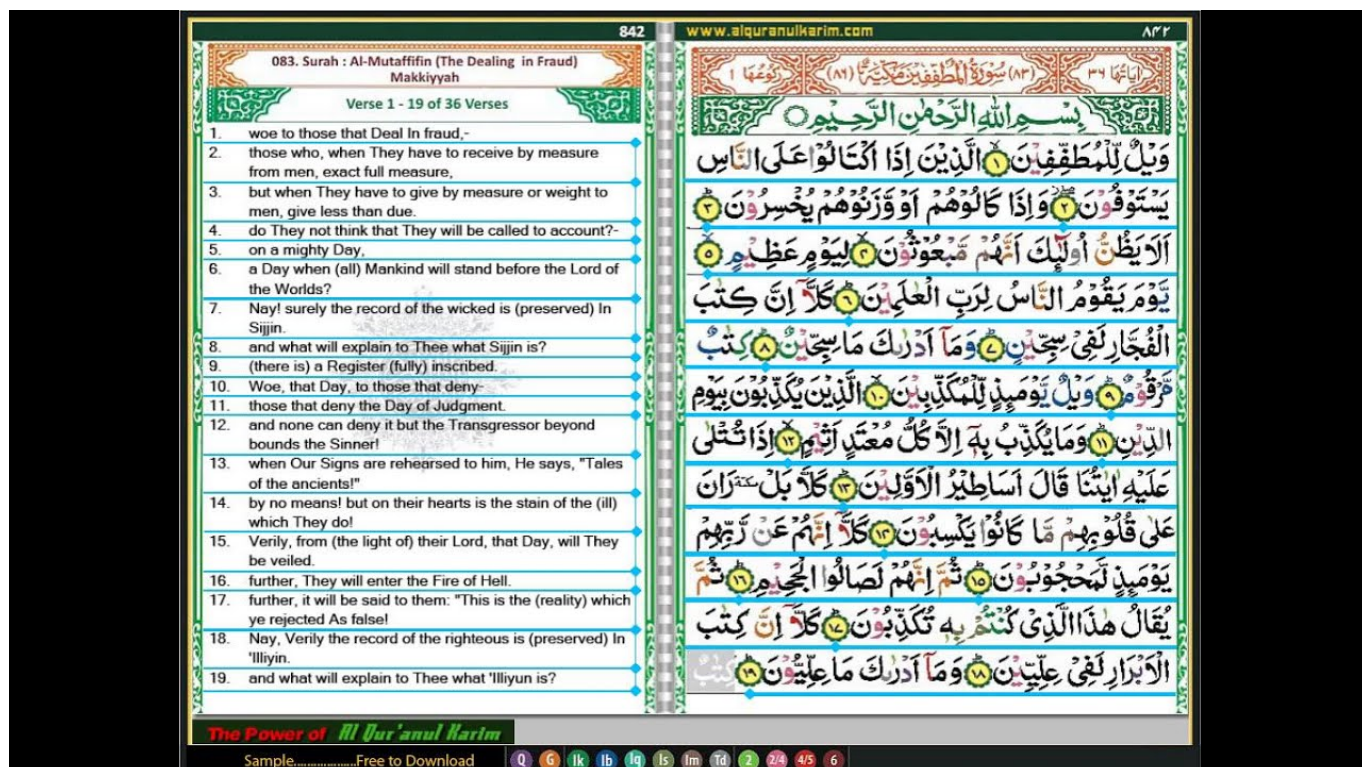 842
083. Surah : Al-Mutaffifin (The Dealing in Fraud)
Makkiyyah
Verse 1 - 19 of 36 Verses
1. woe to those that Deal In fraud,-
2. those who, when They have to receive by measure
from men, exact full measure,
3. but when They have to give by measure or weight to
men, give less than due.
4. do They not think that They will be called to account?-
5. on a mighty Day,
6. a Day when (all) Mankind will stand before the Lord of
the Worlds?
7. Nay! surely the record of the wicked is (preserved) In
Sijjin.
8. and what will explain to Thee what Sijjin is?
9. (there is) a Register (fully) inscribed.
10. Woe, that Day, to those that deny-
11. those that deny the Day of Judgment.
12. and none can deny it but the Transgressor beyond
bounds the Sinner!
13. when Our Signs are rehearsed to him, He says, "Tales
of the ancients!"
14. by no means! but on their hearts is the stain of the (ill)
which They do!
15. Verily, from (the light of) their Lord, that Day, will They
be veiled.
16. further, They will enter the Fire of Hell.
17. further, it will be said to them: "This is the (reality) which
ye rejected As false!
18. Nay, Verily the record of the righteous is (preserved) In
'Illiyin.
19. and what will explain to Thee what 'Illiyun is?
www.alquranulkarim.com ۸۴۲
اٰیَاتُهَا ۳۶ (۸۳) سُوْرَةُ الْمُطَفِّفِيْنَ مَكِّيَّةٌ (۸۶) رُكُوْعُهَا ۱
بِسْمِ اللهِ الرَّحْمٰنِ الرَّحِيْمِ
وَيْلٌ لِّلْمُطَفِّفِيْنَ ۱ الَّذِيْنَ اِذَا اكْتَالُوْا عَلَى النَّاسِ
يَسْتَوْفُوْنَ ۲ وَاِذَا كَالُوْهُمْ اَوْ وَّزَنُوْهُمْ يُخْسِرُوْنَ ۳
اَلَا يَظُنُّ اُولٰٓئِكَ اَنَّهُمْ مَّبْعُوْثُوْنَ ۴ لِيَوْمٍ عَظِيْمٍ ۵
يَّوْمَ يَقُوْمُ النَّاسُ لِرَبِّ الْعٰلَمِيْنَ ۶ كَلَّاۤ اِنَّ كِتٰبَ
الْفُجَّارِ لَفِيْ سِجِّيْنٍ ۷ وَمَاۤ اَدْرٰىكَ مَا سِجِّيْنٌ ۸ كِتٰبٌ
مَّرْقُوْمٌ ۹ وَيْلٌ يَّوْمَىِٕذٍ لِّلْمُكَذِّبِيْنَ ۱۰ الَّذِيْنَ يُكَذِّبُوْنَ بِيَوْمِ
الدِّيْنِ ۱۱ وَمَا يُكَذِّبُ بِهٖۤ اِلَّا كُلُّ مُعْتَدٍ اَثِيْمٍ ۱۲ اِذَا تُتْلٰى
عَلَيْهِ اٰيٰتُنَا قَالَ اَسَاطِيْرُ الْاَوَّلِيْنَ ۱۳ كَلَّا بَلْ سكتة رَانَ
عَلٰى قُلُوْبِهِمْ مَّا كَانُوْا يَكْسِبُوْنَ ۱۴ كَلَّاۤ اِنَّهُمْ عَنْ رَّبِّهِمْ
يَوْمَىِٕذٍ لَّمَحْجُوْبُوْنَ ۱۵ ثُمَّ اِنَّهُمْ لَصَالُوا الْجَحِيْمِ ۱۶ ثُمَّ
يُقَالُ هٰذَا الَّذِيْ كُنْتُمْ بِهٖ تُكَذِّبُوْنَ ۱۷ كَلَّاۤ اِنَّ كِتٰبَ
الْاَبْرَارِ لَفِيْ عِلِّيِّيْنَ ۱۸ وَمَاۤ اَدْرٰىكَ مَا عِلِّيُّوْنَ ۱۹ كِتٰبٌ
The Power of Al Qur'anul Karim
Sample..................Free to Download Q G Ik Ib Iq Is Im Td 2 2/4 4/5 6